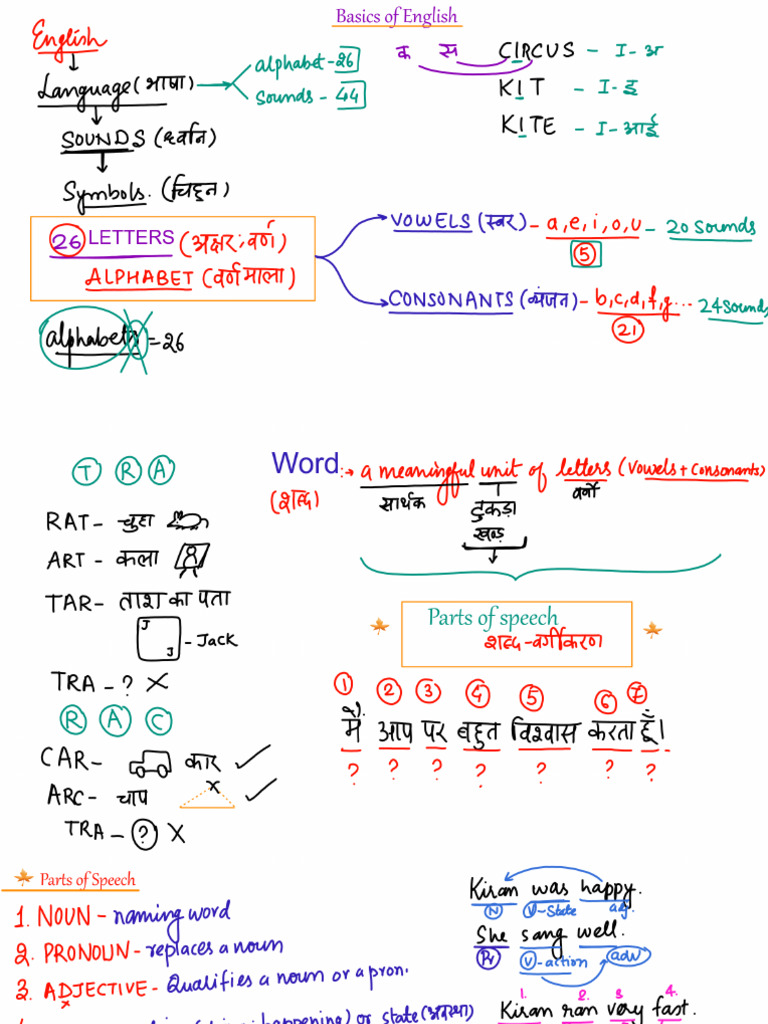 Basics of English
English
Language (भाषा)
alphabet - 26
Sounds - 44
क स CIRCUS - I - अ
KIT - I - इ
KITE - I - आई
SOUNDS (ध्वनि)
Symbols. (चिह्न)
26 LETTERS (अक्षर; वर्ण)
ALPHABET (वर्णमाला)
VOWELS (स्वर) - a, e, i, o, u - 20 Sounds
5
CONSONANTS (व्यंजन) - b, c, d, f, g... 24 Sounds
21
alphabets = 26
T R A
RAT - चुहा
ART - कला
TAR- ताश का पता
J
J - Jack
TRA - ? X
R A C
CAR - कार ✓
ARC - चाप x ✓
TRA - ? X
Word :→ a meaningful unit of letters (Vowels + Consonants)
(शब्द) सार्थक टुकड़ा वर्णों
खण्ड
Parts of speech
शब्द-वर्गीकरण
1 2 3 4 5 6 7
मैं आप पर बहुत विश्वास करता हूँ।
? ? ? ? ? ? ?
Parts of Speech
1. NOUN - naming word
2. PRONOUN - replaces a noun
3. ADJECTIVE - Qualifies a noun or a pron.
happening) or state (अवस्था)
Kiran was happy.
N V-State adj.
She sang well.
Pr V-action adv
1. 2. 3 4.
Kiran ran very fast.